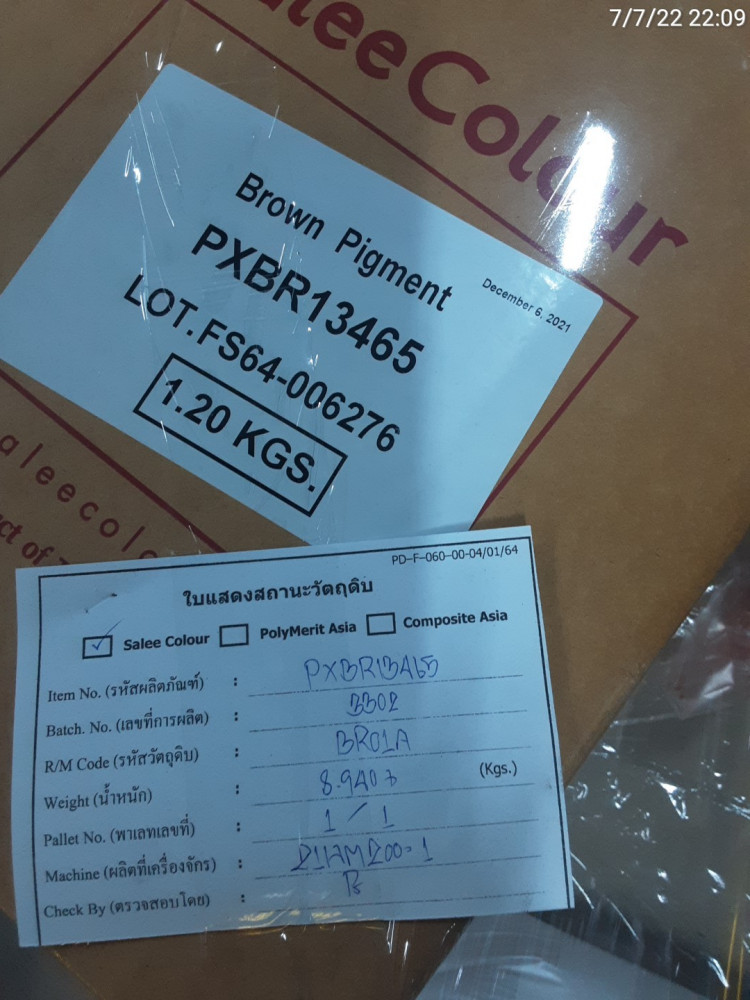 7/7/22 22:09
aleeColour
Brown Pigment
December 6, 2021
PXBR13465
LOT.FS64-006276
1.20 KGS.
aleecolo
ct of
PD-F-060-00-04/01/64
ใบแสดงสถานะวัตถุดิบ
Salee Colour PolyMerit Asia Composite Asia
Item No. (รหัสผลิตภัณฑ์) : PXBR13465
Batch. No. (เลขที่การผลิต) : 3302
R/M Code (รหัสวัตถุดิบ) : BR01A
Weight (น้ำหนัก) : 8.940 (Kgs.)
Pallet No. (พาเลทเลขที่) : 1 / 1
Machine (ผลิตที่เครื่องจักร) :
Check By (ตรวจสอบโดย) :